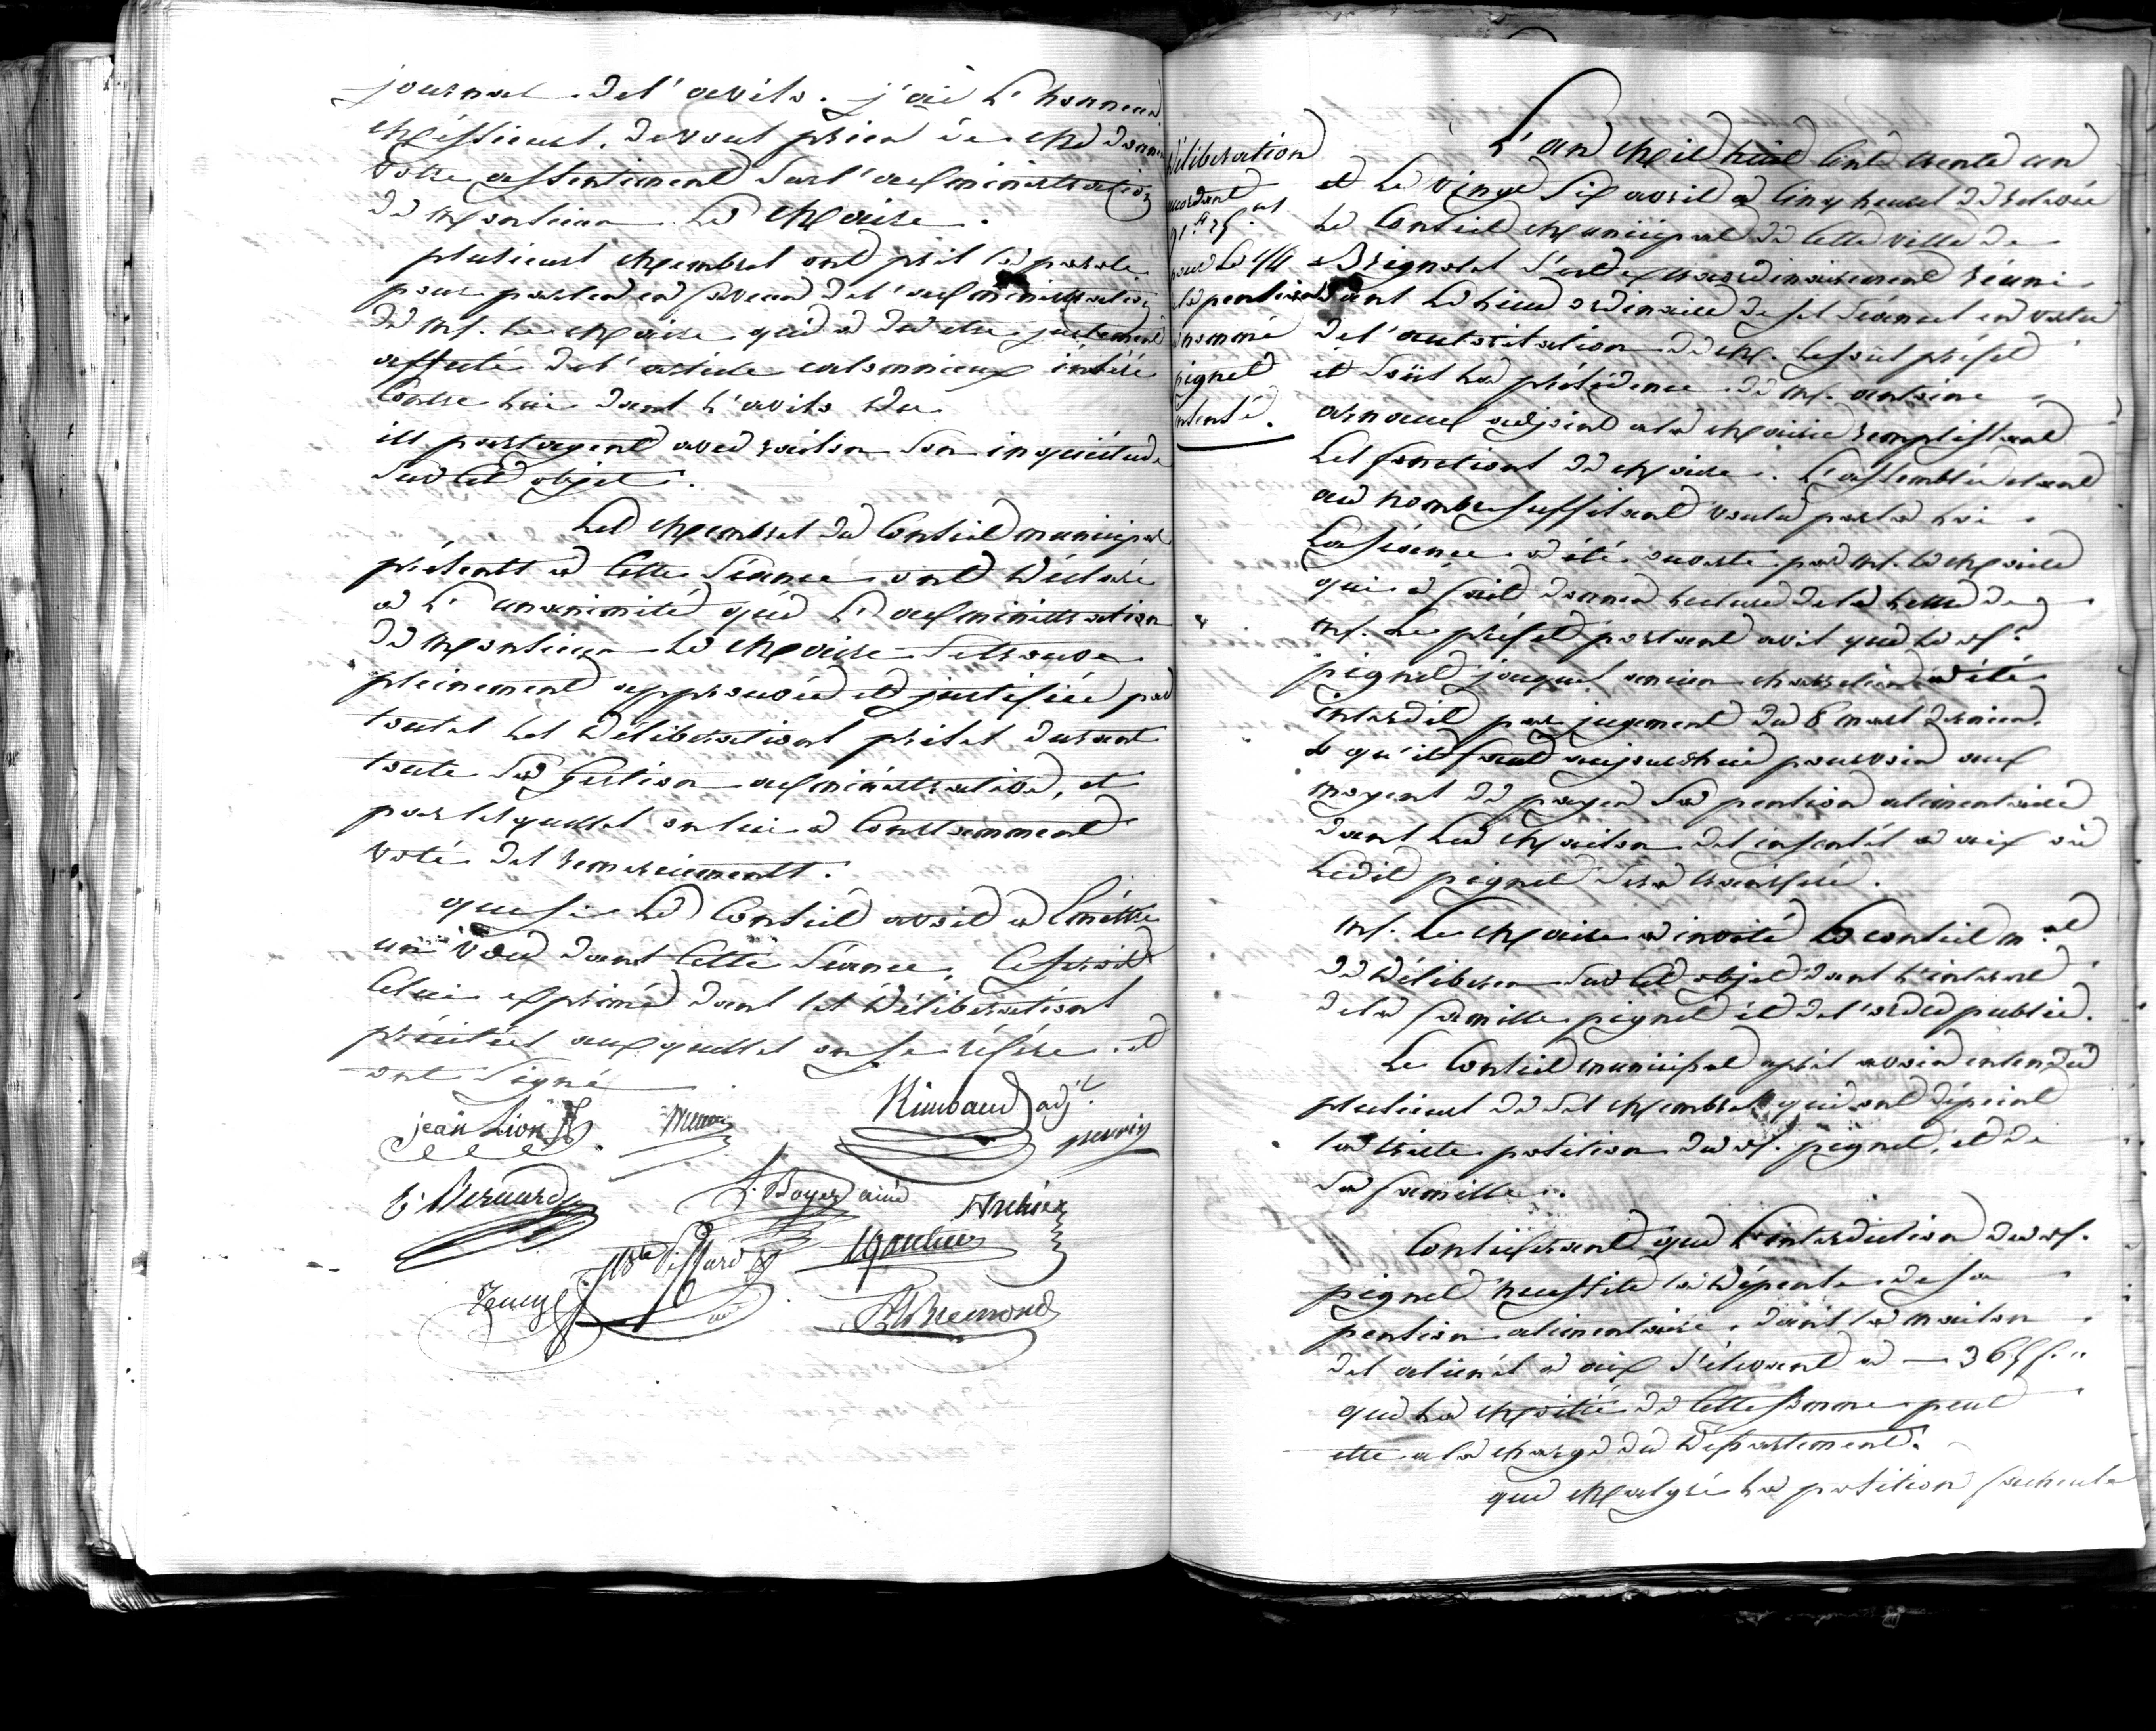 journal de l'aviso. j'ai l'honneur
Messieurs, de vous prier de me donner
votre assentiment sur l'administration
de Monsieur le Maire.
plusieurs Membres ont pris la parole
pour parler en faveur de l'administration
de Mr. le Maire qui a du etre justement
affecté de l'article calomnieux inséré
contre lui dans l'aviso du
ils partagent avec raison son inquiétude
sur cet objet.
Les Membres du Conseil municipal
présents a cette séance ont déclaré
a l'unanimité que l'administration
de Monsieur le Maire se trouve
pleinement approuvée et justifiée par
toutes les délibérations prises durant
toute sa gestion administrative, et
par lesquelles on lui a constamment
voté des remerciements.
que si le Conseil avoit a émettre
un vœu dans cette séance, ce seroit
celui exprimé dans les délibérations
précitées auxquelles on se réfère. et
ont signé
jean Lion
Rimbaud adj.t
perrin
E. Bernard
J. Boyer ainé
Délibération
accordant
91 f 25 c
pour le 1/4
de la pension
du nommé
pignet
insensé.
L'an Mil huit cent trente un
et le vingt six avril a cinq heures de relevée
le Conseil Municipal de cette ville de
Brignoles s'est extraordinairement réuni
dans le lieu ordinaire de ses séances en vertu
de l'autorisation de M. le sous préfet
et sous la présidence de Mr. antoine
arnaud adjoint a la Mairie remplissant
les fonctions de Maire. L'assemblée etant
au nombre suffisant voulu par la loi
La séance a été ouverte par Mr. le Maire
qui a fait donner lecture de la lettre de
Mr. le préfet portant avis que le sr.
pignet jacques ancien charretier a été
interdit par jugement du 8 mars dernier.
& qu'il faut aujourdhui pourvoir aux
moyens de payer sa pension alimentaire
dans la Maison des insensés a aix où
ledit pignet sera transféré.
Mr. le Maire a invité le conseil m.al
de délibérer sur cet objet dans l'interet
de la famille pignet et de l'ordre public.
Le Conseil municipal après avoir entendu
plusieurs de ses Membres qui ont dépeint
la triste position du sr. pignet, et de
sa famille.
Considérant que l'interdiction du sr.
pignet necessite la dépense de sa
pension alimentaire, dans la maison
des alienés a aix s'élevant a — 365 f. "
que la Moitié de cette somme peut
etre a la charge du Département.
que Malgré la position facheuse